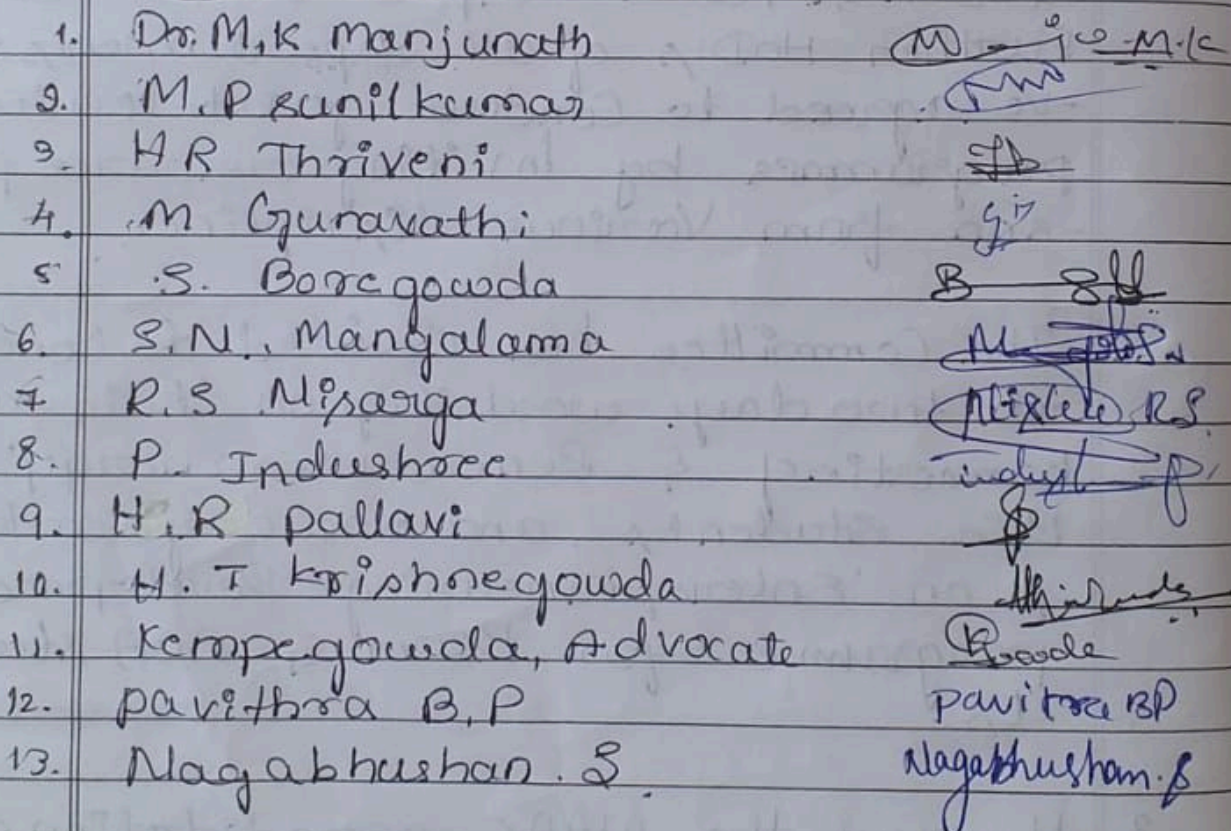 1. Dr. M.K Manjunath M.K
2. M.P Sunilkumar
3. HR Thriveni
4. M Gunavathi
5 S. Boregowda
6. S.N. Mangalama
7 R.S Nisarga R.S.
8. P. Indushree
9. H.R Pallavi
10. H.T Krishnegowda
11. Kempegowda, Advocate
12. pavithra B.P pavitra BP
13. Nagabhushan. S Nagabhushan. S